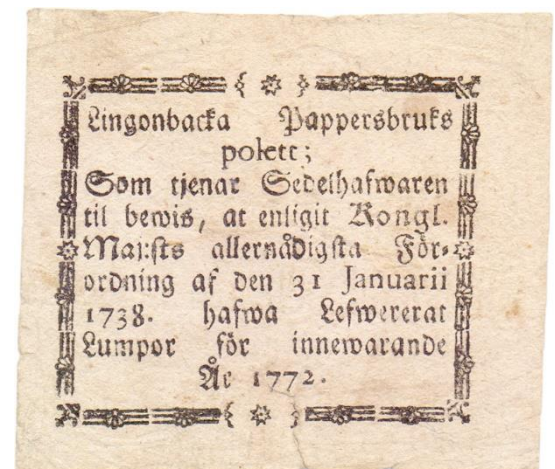 Lingonbacka Pappersbruks
polett;
Som tjenar Sedelhafwaren
til bewis, at enligit Kongl.
Maj:sts allernådigsta För-
ordning af den 31 Januarii
1738. hafwa Lefwererat
Lumpor för innewarande
År 1772.